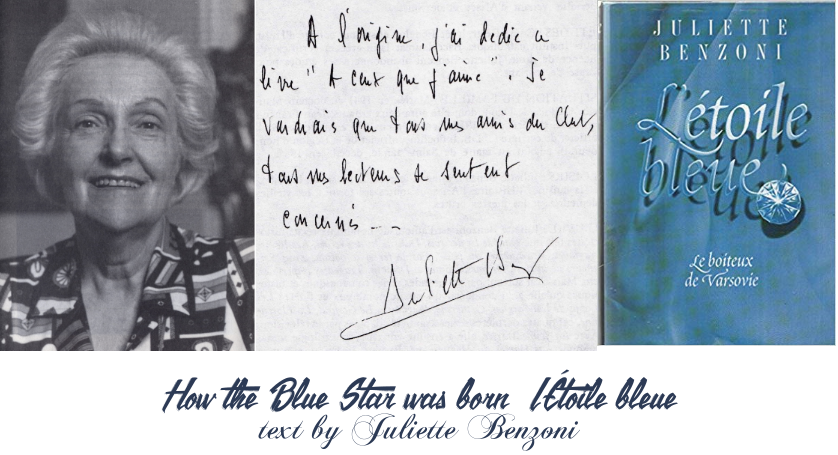 A l'origine, j'ai dédié ce
livre "A ceux que j'aime". Je
voudrais que tous mes amis du Club,
tous mes lecteurs se sentent
concernés...
Juliette Benzoni
JULIETTE
BENZONI
L'étoile
bleue
Le boiteux
de Varsovie
How the Blue Star was born l'Étoile bleue
text by Juliette Benzoni